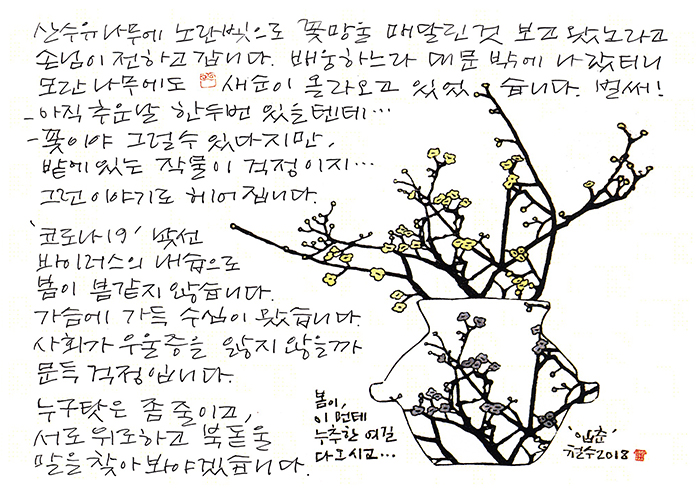 산수유나무에 노란빛으로 꽃망울 매달린것 보고 왔노라고
손님이 전하고 갑니다. 배웅하느라 대문 밖에 나갔더니
모란 나무에도 새순이 올라오고 있었습니다. 벌써!
- 아직 추운날 한두번 있을텐데…
- 꽃이야 그럴수 있다지만,
밭에있는 작물이 걱정이지…
그런이야기로 헤어집니다.
'코로나19' 낯선
바이러스의 내습으로
봄이 봄같지 않습니다.
가슴에 가득 수심이 왔습니다.
사회가 우울증을 앓지 않을까
문득 걱정입니다.
누구탓은 좀 줄이고,
서로 위로하고 북돋울
말을 찾아 봐야겠습니다.
봄이,
이 먼데
누추한 여길
다 오시고…
철수2018